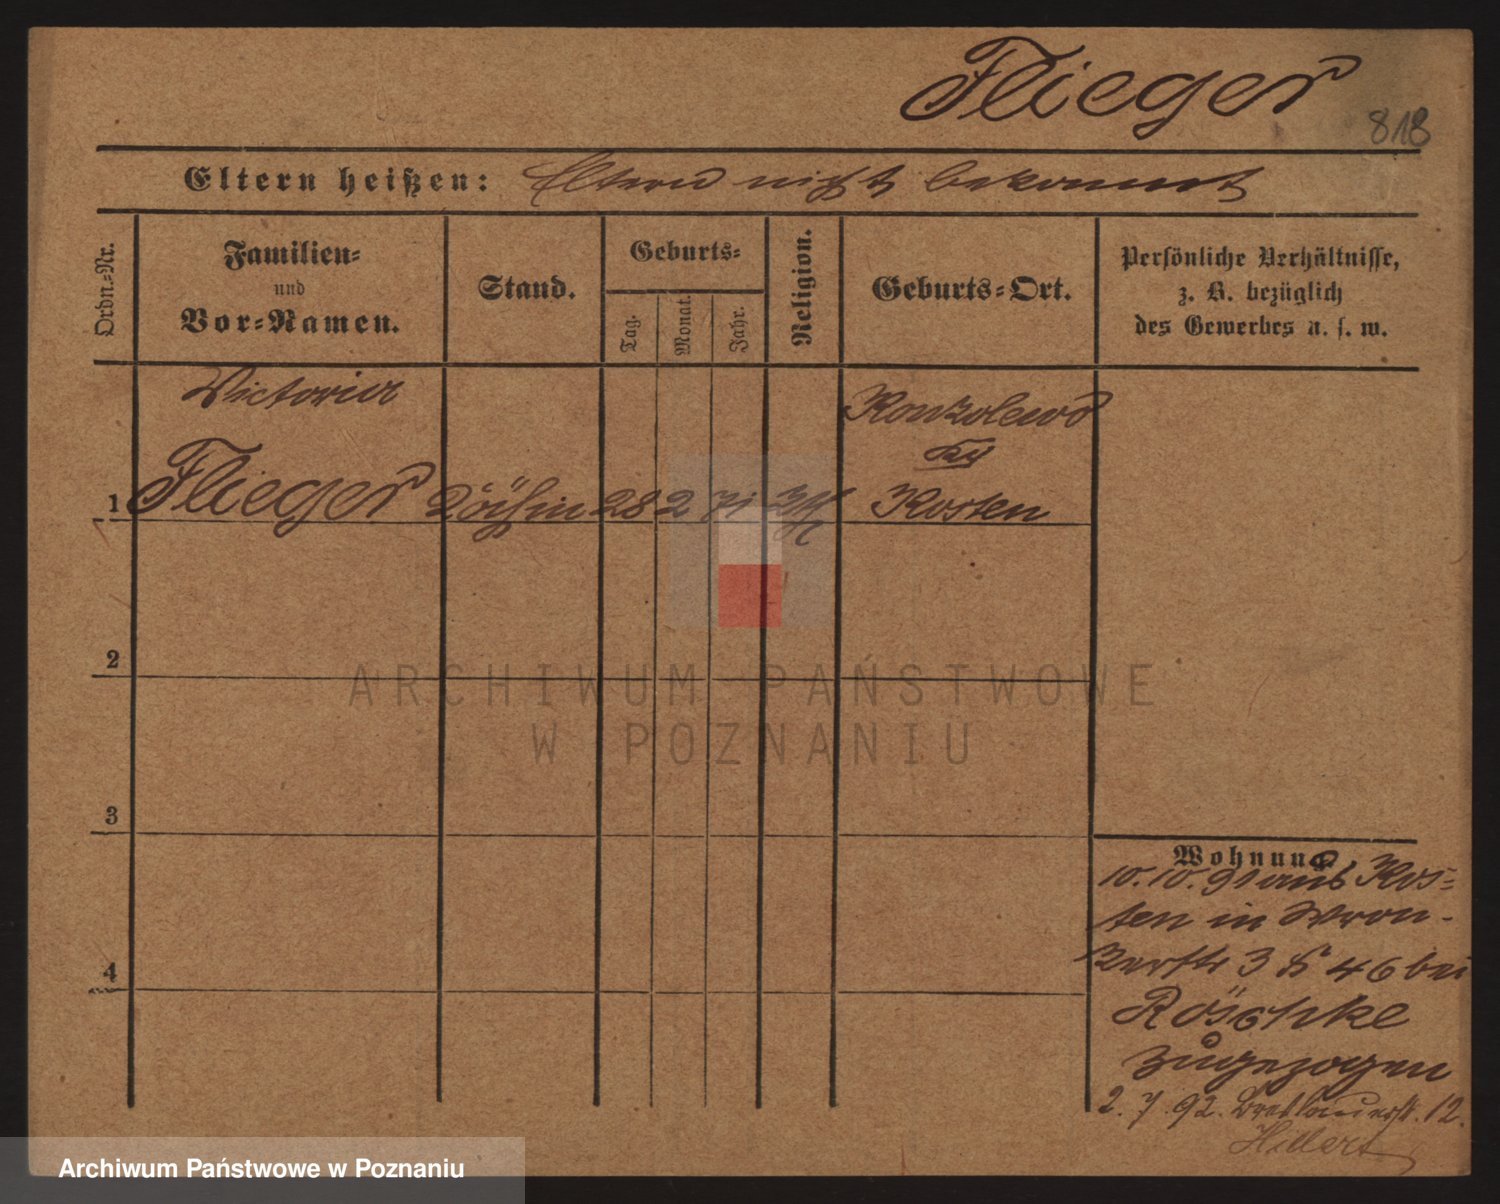 Flieger
818
Eltern heißen: Eltern nicht bekannt
Ordn.-Nr.
Familien-
und
Vor-Namen.
Stand.
Geburts-
Tag.
Monat.
Jahr.
Religion.
Geburts-Ort.
Persönliche Verhältnisse,
z. B. bezüglich
des Gewerbes u. s. w.
Victoria
1 Flieger Köchin 28 2 71 Kth
Kosten
2
3
4
ARCHIWUM PAŃSTWOWE
W POZNANIU
Wohnung
10.10.91 aus Kos-
ten in Wron-
kerstr 3 46 bei
Röschke
zugezogen
2.7.92. Breslauerstr. 12.
Hillert
Archiwum Państwowe w Poznaniu